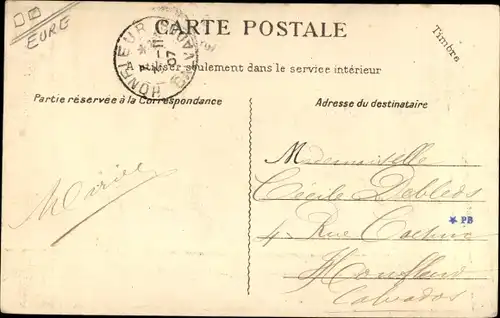 EURE
CARTE POSTALE
Timbre
HONFLEUR CALVADOS
A utiliser seulement dans le service intérieur
Partie réservée à la Correspondance
Adresse du destinataire
Marie
Mademoiselle
Cécile
PB
4 Rue
Honfleur
Calvados